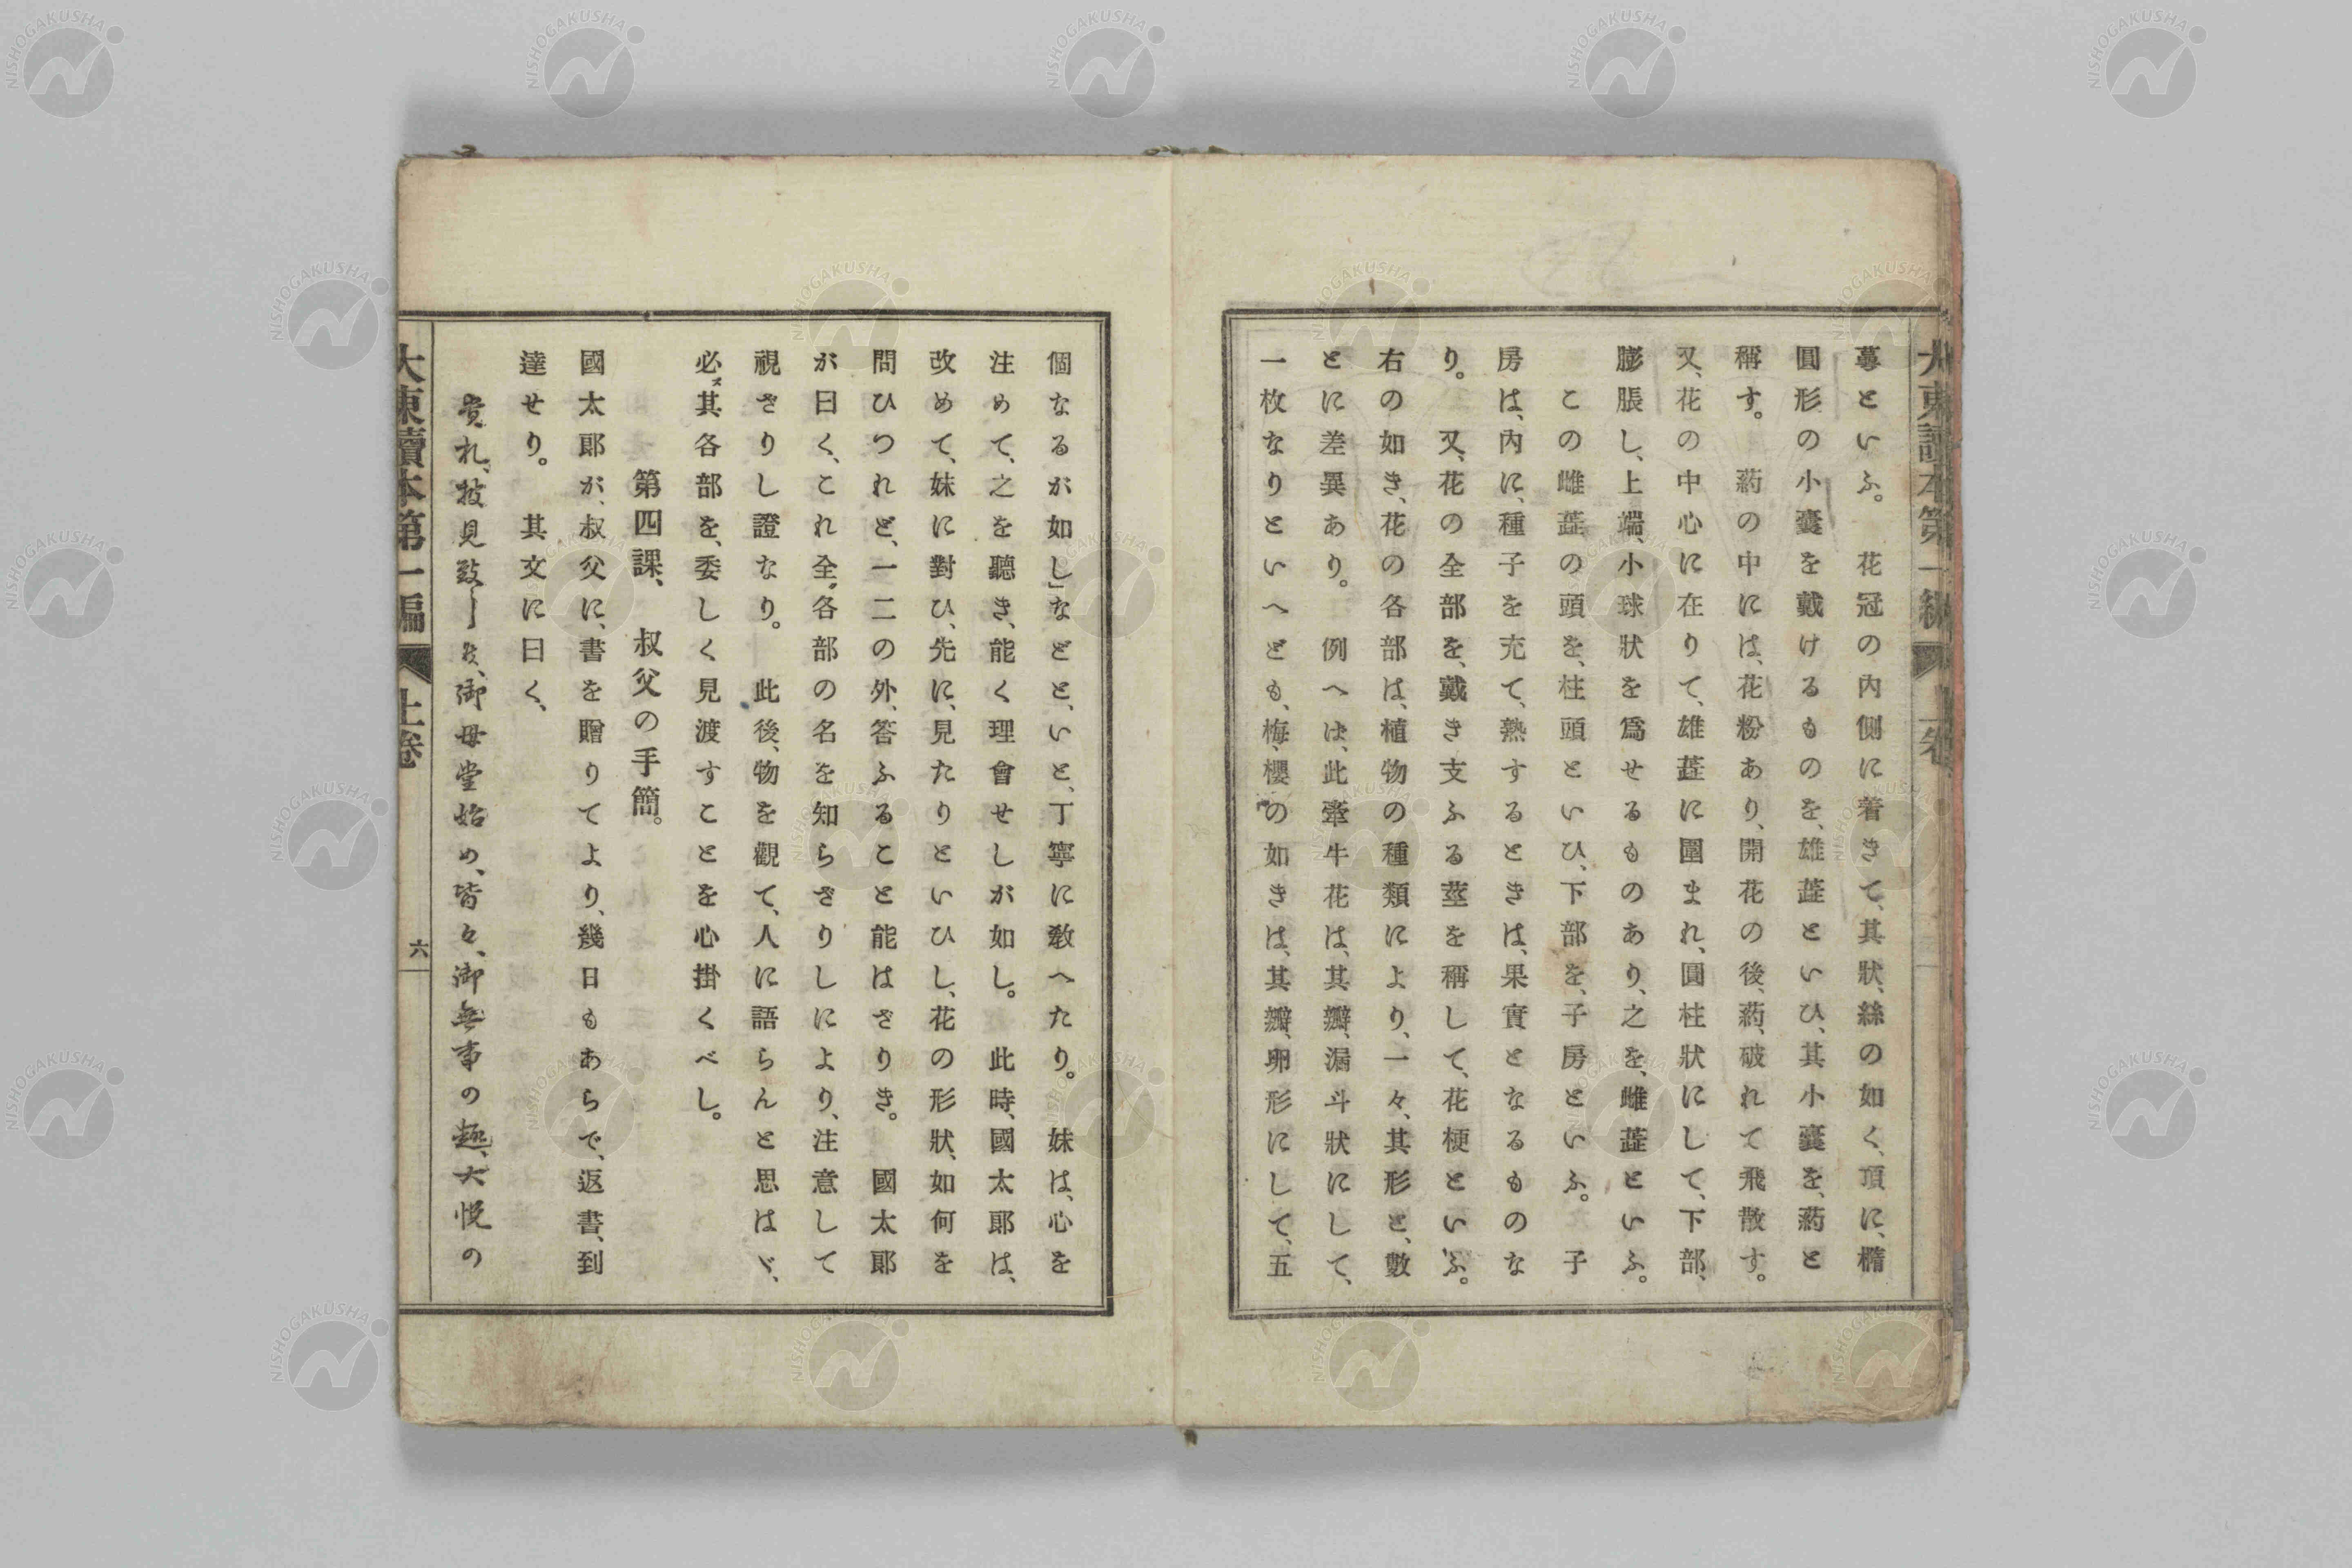 蕚といふ。　花冠の內側に着きて、其狀、絲の如く、頂に、橢
圓形の小囊を戴けるものを、雄蕋といひ、其小囊を、葯と
稱す。　葯の中には、花粉あり、開花の後、葯、破れて飛散す。
又、花の中心に在りて、雄蕋に圍まれ、圓柱狀にして、下部、
膨脹し、上端、小球狀を爲せるものあり、之を、雌蕋といふ。
この雌蕋の頭を、柱頭といひ、下部を、子房といふ。　子
房は、內に、種子を充て、熟するときは、果實となるものな
り。　又、花の全部を、戴き支ふる莖を稱して、花梗といふ。
右の如き、花の各部は、植物の種類により、一々、其形と、數
とに差異あり。　例へは、此牽牛花は、其瓣、漏斗狀にして、
一枚なりといへども、梅、櫻の如きは、其瓣、卵形にして、五
個なるが如し」などと、いと、丁寧に敎へたり。　妹は、心を
注めて、之を聽き、能く理會せしが如し。　此時、國太郞は、
改めて、妹に對ひ、先に、見たりといひし、花の形狀、如何を
問ひつれど、一二の外、答ふること能はざりき。　國太郞
が曰く、これ全各部の名を知らざりしにより、注意して
視ざりし證なり。　此後、物を觀て、人に語らんと思はゞ、
必ズ其各部を、委しく見渡すことを心掛くべし。
第四課、　叔父の手簡。
國太郞が、叔父に、書を贈りてより、幾日もあらで、返書、到
達せり。　其文に曰く、
貴札、披見致しま、御母堂始め、皆々、御無事の趣、大悅の
大東讀本第一編　上卷　六
大東讀本第一編　上卷
NISHOGAKUSHA